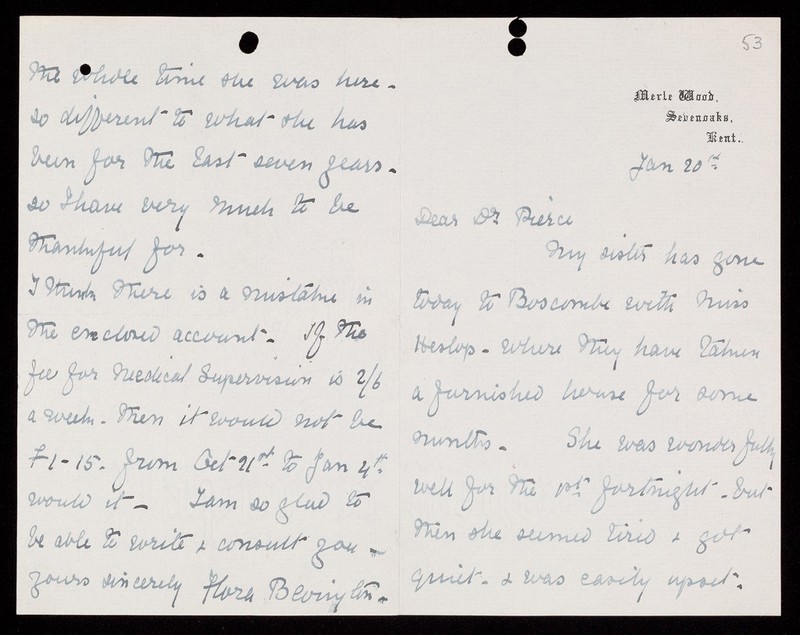 53
Merle Wood,
Sevenoaks,
Kent.
Jan 20th
Dear Dr Pierce
My sister has gone
today to Boscombe with Miss
Heslop - where they have taken
a furnished house for some
months - She was wonderfully
well for the 1st fortnight - but
then she seemed tired & got
quiet - & was easily upset.
the whole time she was here -
so different to what she has
been for the last seven years -
so I have very much to be
thankful for -
I think there is a mistake in
the enclosed account - If the
fee for Medical Supervision is 2/6
a week - then it would not be
£1-15. from Oct 21st to Jan 4th
would it - I am so glad to
be able to write & consult you -
yours sincerely Flora Bevington -